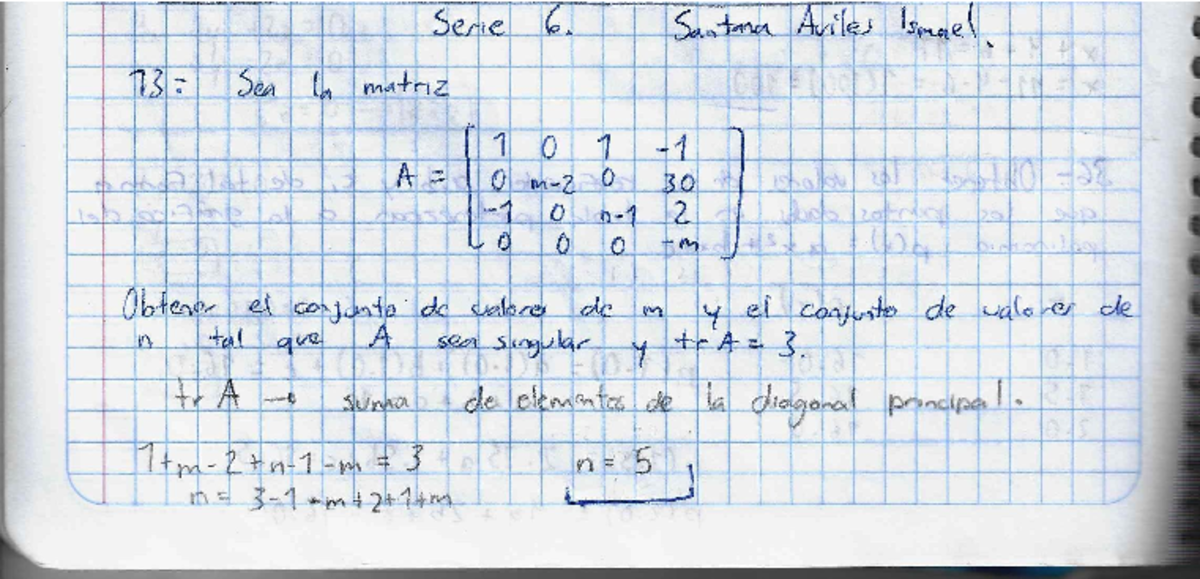 Serie 6. Santana Aviles Ismael.
13= Sea la matriz
A = [ 1 0 1 -1
0 m-2 0 30
-1 0 n-1 2
0 0 0 -m ]
Obtener el conjunto de valores de m y el conjunto de valores de
n tal que A sea singular y tr A = 3.
tr A → suma de elementos de la diagonal principal.
1+m-2+n-1-m = 3 n = 5
n = 3-1-m+2+1+m